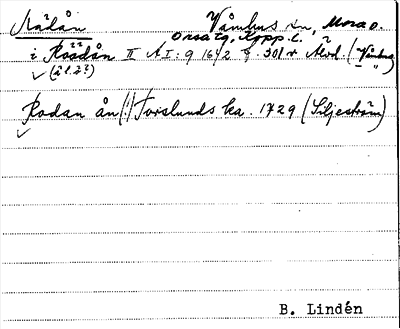 Nålån Våmhus sn, Mora o.
Orsa tg, Kopp. l.
i Råadån II A I: 9 1642 f. 301 r Årl. (Våmhus)
(ål.å?)
Rodan ån Torslunds ka. 1729 (Siljeström)
B. Lindén